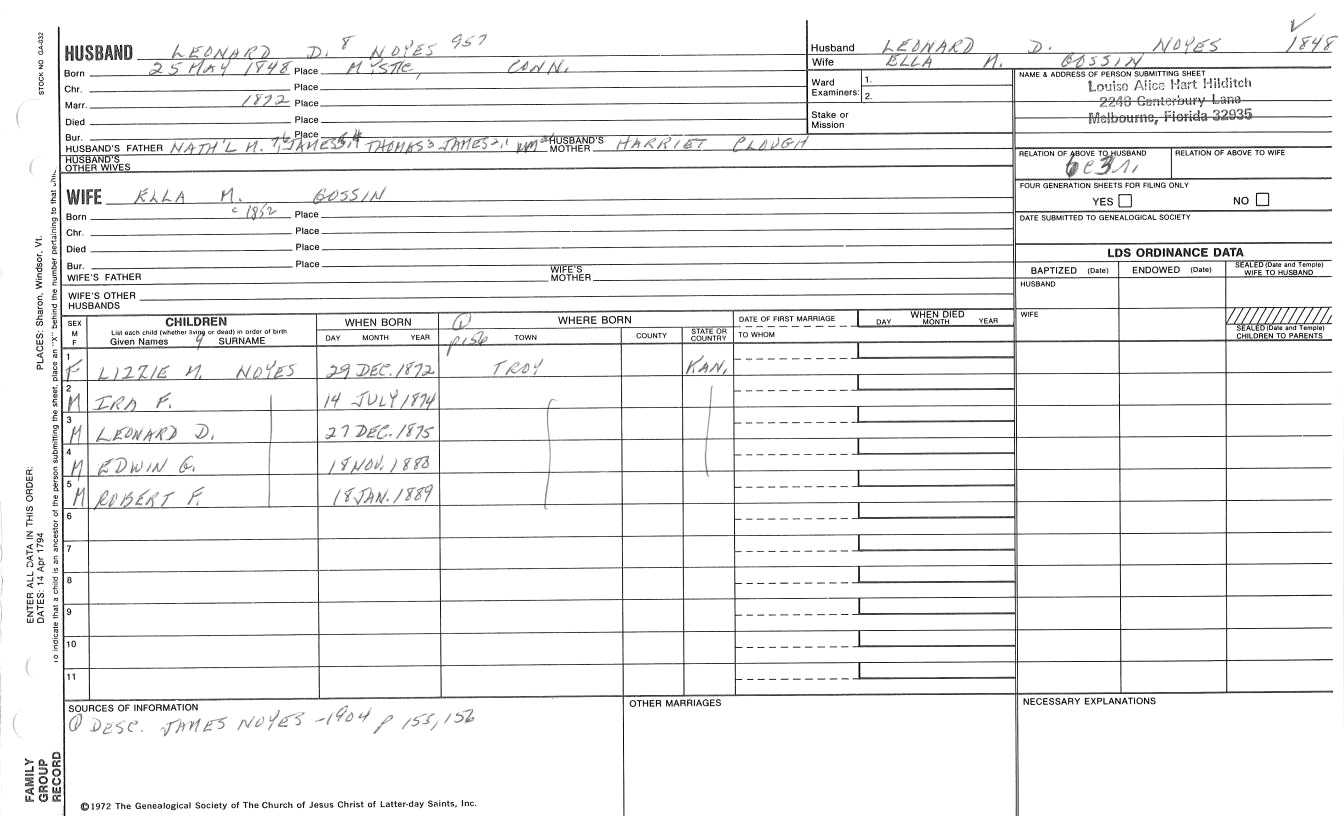 STOCK NO. GA-032
HUSBAND LEONARD D. 8 NOYES 957
Born 25 MAY 1848 Place MYSTIC, CONN.
Chr. Place
Marr. 1872 Place
Died Place
Bur. Place
HUSBAND'S FATHER NATH'L M. 7, JAMES THOMAS 3 JAMES 2, HUSBAND'S MOTHER HARRIET CLOUGH
HUSBAND'S OTHER WIVES
WIFE ELLA M. GOSSIN
Born c 1852 Place
Chr. Place
Died Place
Bur. Place
WIFE'S FATHER WIFE'S MOTHER
WIFE'S OTHER HUSBANDS
Husband LEONARD D. NOYES 1848
Wife ELLA M. GOSSIN
Ward Examiners: 1.
2.
Stake or Mission
NAME & ADDRESS OF PERSON SUBMITTING SHEET
Louise Alice Hart Hilditch
2248 Canterbury Lane
Melbourne, Florida 32935
RELATION OF ABOVE TO HUSBAND RELATION OF ABOVE TO WIFE
6C3R
FOUR GENERATION SHEETS FOR FILING ONLY
YES NO
DATE SUBMITTED TO GENEALOGICAL SOCIETY
LDS ORDINANCE DATA
BAPTIZED (Date) ENDOWED (Date) SEALED (Date and Temple) WIFE TO HUSBAND
HUSBAND
WIFE
SEALED (Date and Temple) CHILDREN TO PARENTS
SEX M F CHILDREN WHEN BORN ① WHERE BORN DATE OF FIRST MARRIAGE WHEN DIED
List each child (whether living or dead) in order of birth
Given Names 9 SURNAME DAY MONTH YEAR p156 TOWN COUNTY STATE OR COUNTRY TO WHOM DAY MONTH YEAR
1 F LIZZIE M. NOYES 29 DEC. 1872 TROY KAN.
2 M IRA F. 14 JULY 1874
3 M LEONARD D. 27 DEC. 1875
4 M EDWIN G. 18 NOV. 1883
5 M ROBERT F. 18 JAN. 1889
6
7
8
9
10
11
SOURCES OF INFORMATION OTHER MARRIAGES NECESSARY EXPLANATIONS
① DESC. JAMES NOYES -1904 p 155, 156
©1972 The Genealogical Society of The Church of Jesus Christ of Latter-day Saints, Inc.
PLACES: Sharon, Windsor, Vt.
ENTER ALL DATA IN THIS ORDER:
DATES: 14 Apr 1794
To indicate that a child is an ancestor of the person submitting the sheet, place an "X" behind the number pertaining to that child.
FAMILY GROUP RECORD